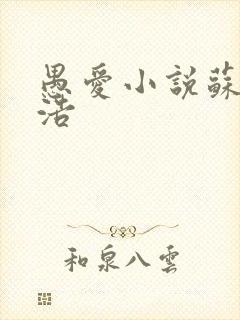 愚愛小説蘇
活
和泉八雲